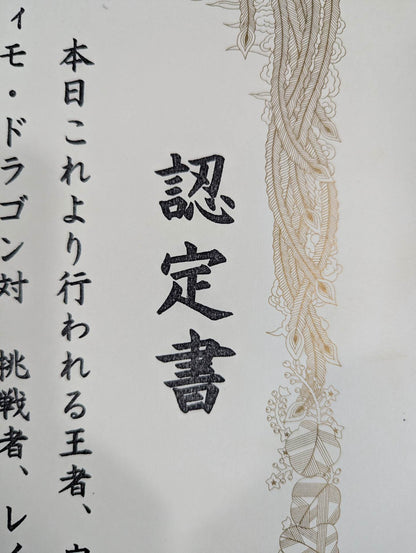 認定書
本日これより行われる王者、ウ
ィモ・ドラゴン対 挑戦者、レイ